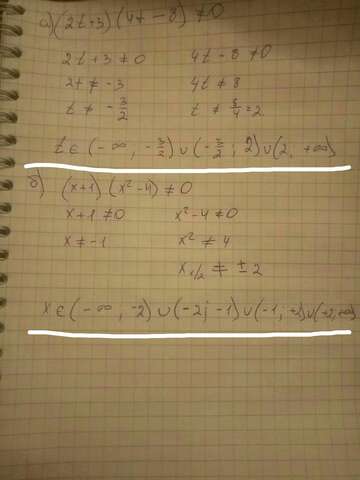 а) (2t+3)(4t-8)≠0
2t+3≠0 4t-8≠0
2t≠-3 4t≠8
t≠-3/2 t≠8/4=2
t∈(-∞, -3/2)∪(-3/2; 2)∪(2, +∞)
б) (x+1)(x²-4)≠0
x+1≠0 x²-4≠0
x≠-1 x²≠4
x1/2≠±2
x∈(-∞, -2)∪(-2; -1)∪(-1; +2)∪(+2; +∞)